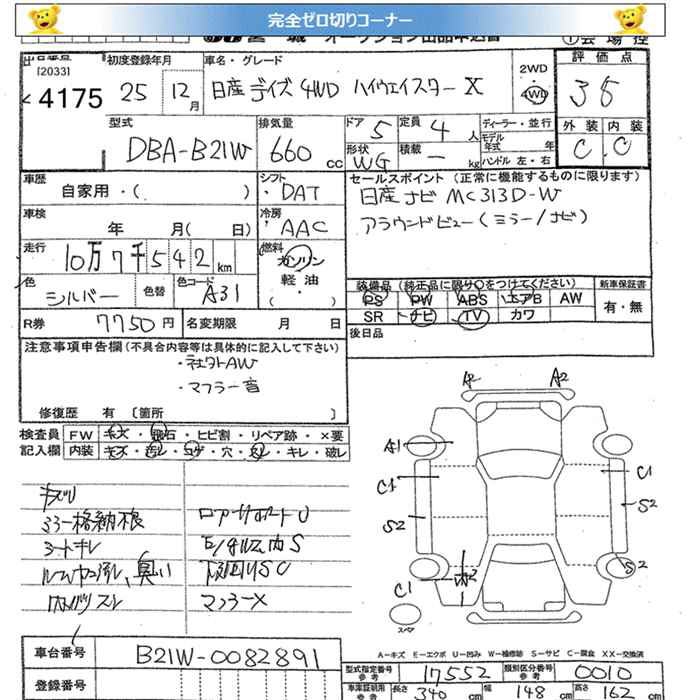 完全ゼロ切りコーナー
[2033]
4175
初度登録年月
25 12月
車名・グレード
日産 デイズ 4WD ハイウェイスター X
2WD
4WD
評価点
35
型式
DBA-B21W
排気量
660 cc
ドア 5
定員 4 人
ディーラー・並行
形状 WG
積載 - kg
モデル年式 年
ハンドル 左・右
外装 内装
C C
車歴
自家用・( )
シフト
DAT
セールスポイント (正常に機能するものに限ります)
日産ナビ MC313D-W
アラウンドビュー(ミラー/ナビ)
車検
年 月( 日)
冷房
AAC
走行
10万7千542km
燃料
ガソリン
軽油
( )
色
シルバー
色替
色コード
A31
装備品 (純正品に限り○をつけてください)
PS PW ABS エアB AW
SR ナビ TV カワ
新車保証書
有・無
R券
7750円
名変期限 月 日
後日品
注意事項申告欄(不具合内容等は具体的に記入して下さい)
・社外AW
・マフラー音
修復歴 有 〔箇所 〕
検査員 FW キズ・飛石・ヒビ割・リペア跡・×要
記入欄 内装 キズ・
・穴・
・キレ・破レ
A2 A2
A1
C1 C1
S2 S2
C1 S2
スペア
ミラー格納不良
シートキレ
臭い
ロアサポートU
マフラーX
A-キズ E-エクボ U-凹み W-補修跡 S-サビ C-腐食 XX-交換済
車台番号
B21W-0082891
登録番号
型式指定番号 参考 17552
類別区分番号 参考 0010
車庫証明用 参考 長さ 340 cm 幅 148 cm 高さ 162 cm